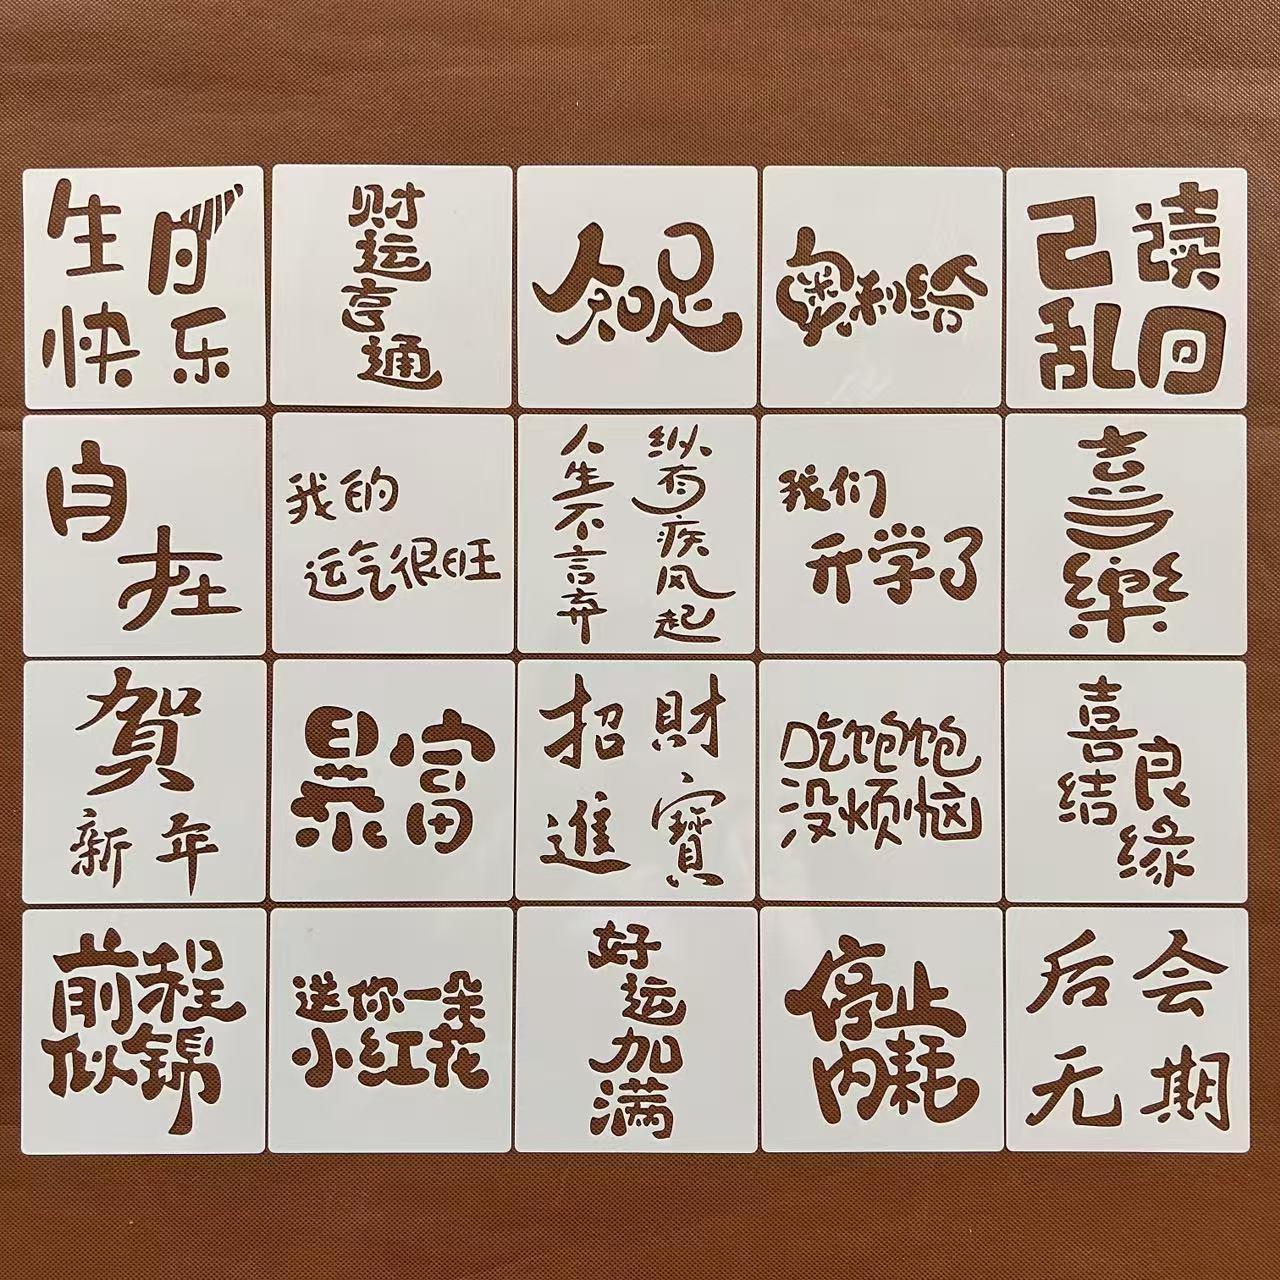 生日
快乐
财运亨通
知足
奥利给
已读
乱回
自在
我的
运气很旺
纵有疾风起
人生不言弃
我们
开学了
喜樂
賀
新年
暴富
招財
進寶
吃饱饱
没烦恼
喜结
良缘
前程
似锦
送你一朵
小红花
好运加满
停止
内耗
后会
无期